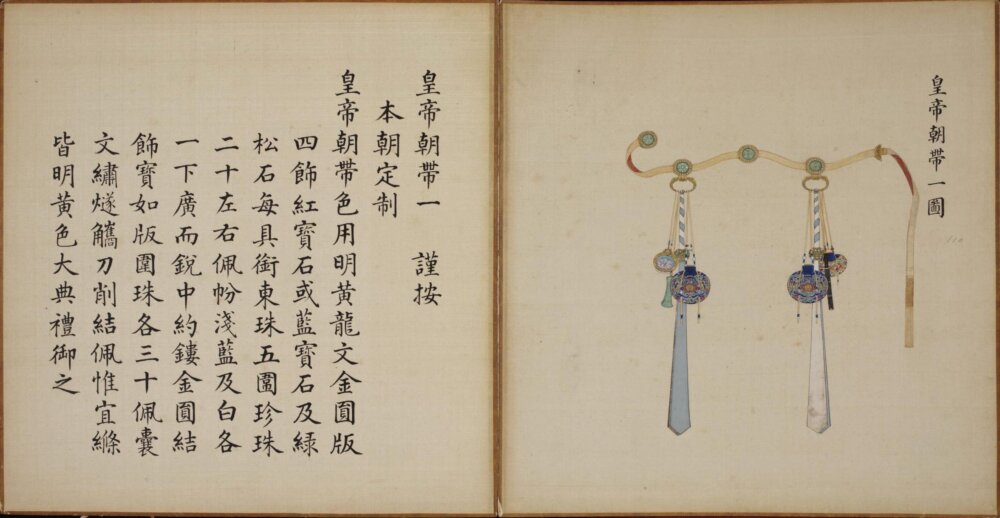 皇帝朝帶一圖
皇帝朝帶一 謹按
本朝定制
皇帝朝帶色用明黃龍文金圓版
四飾紅寶石或藍寶石及綠
松石每具銜東珠五圍珍珠
二十左右佩帉淺藍及白各
一下廣而銳中約鏤金圓結
飾寶如版圍珠各三十佩囊
文繡燧觿刀削結佩惟宜絛
皆明黃色大典禮御之